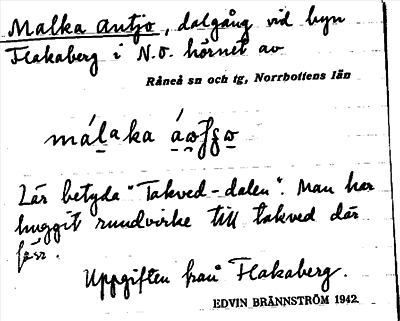 Malka antjo, dalgång vid byn
Flakaberg i N.O. hörnet av
Råneå sn och tg, Norrbottens län
málaka
Lär betyda "Takved-dalen". Man har
huggit rundvirke till takved där
förr.
Uppgiften från Flakaberg.
EDVIN BRÄNNSTRÖM 1942.